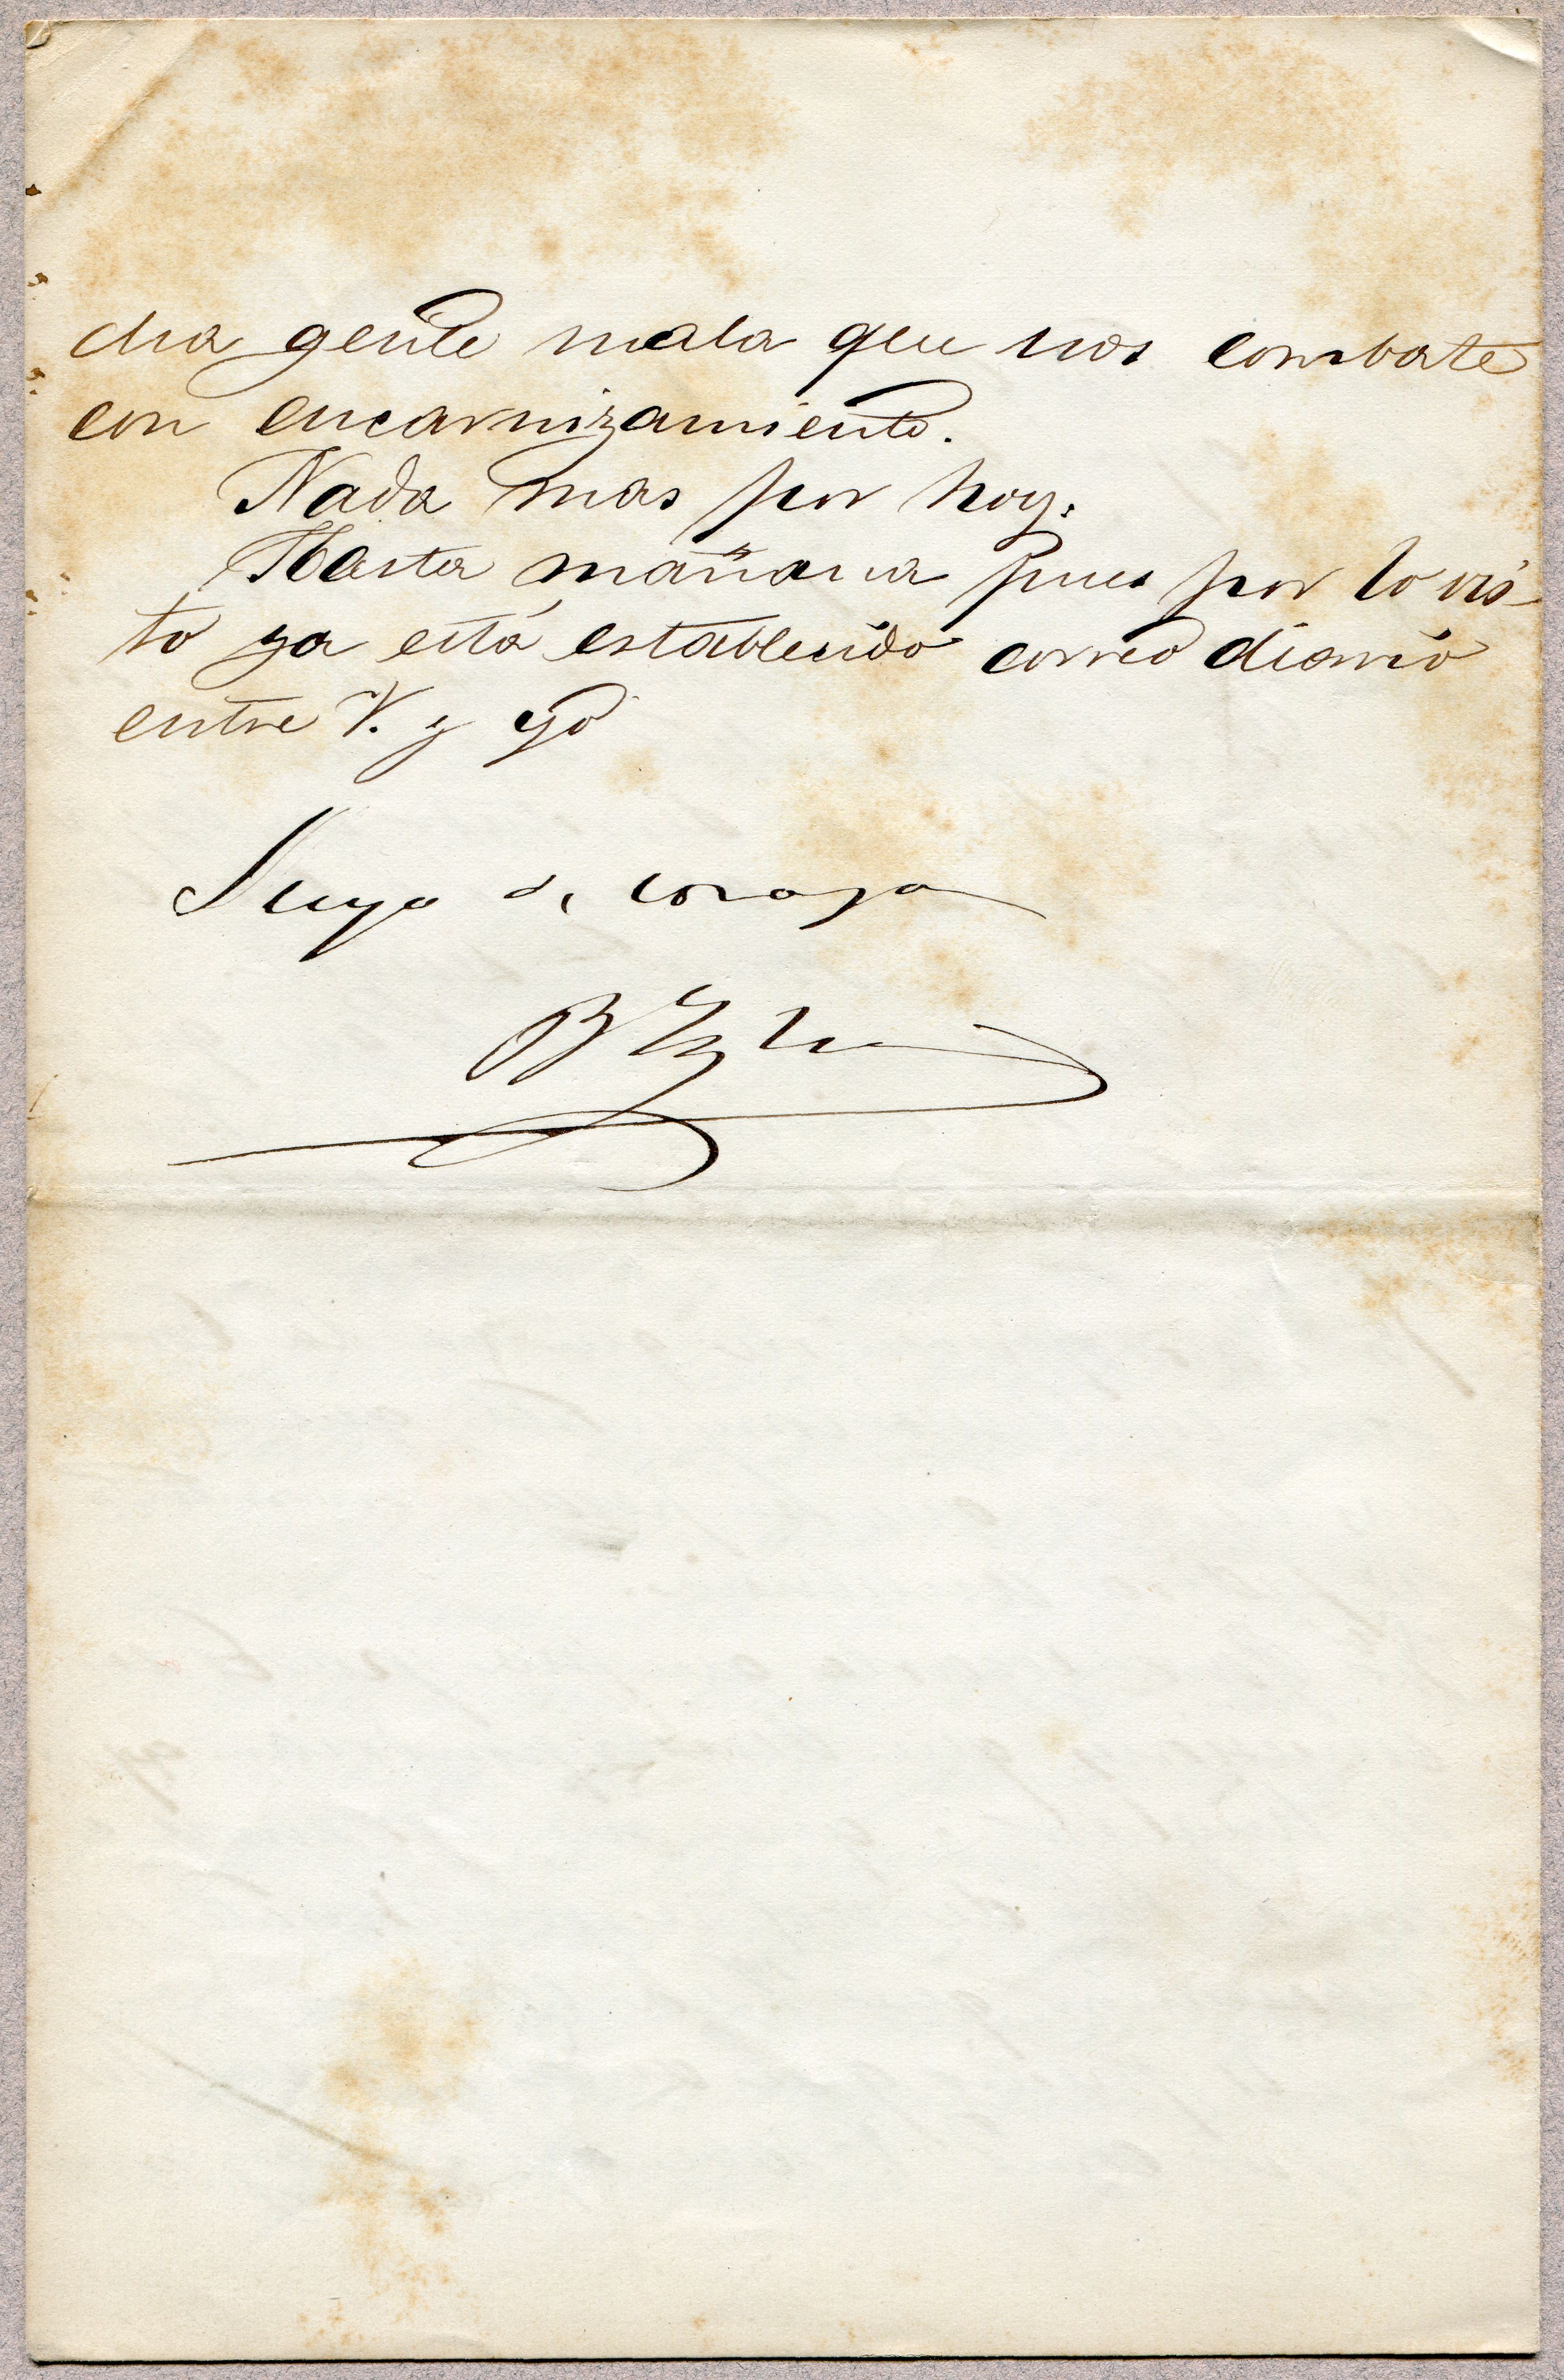 cha gente mala que nos combate
con encarnizamiento.
Nada mas por hoy.
Hasta mañana pues por lo vis-
to ya está establecido correo diario
entre V. y yo
Suyo de corazon